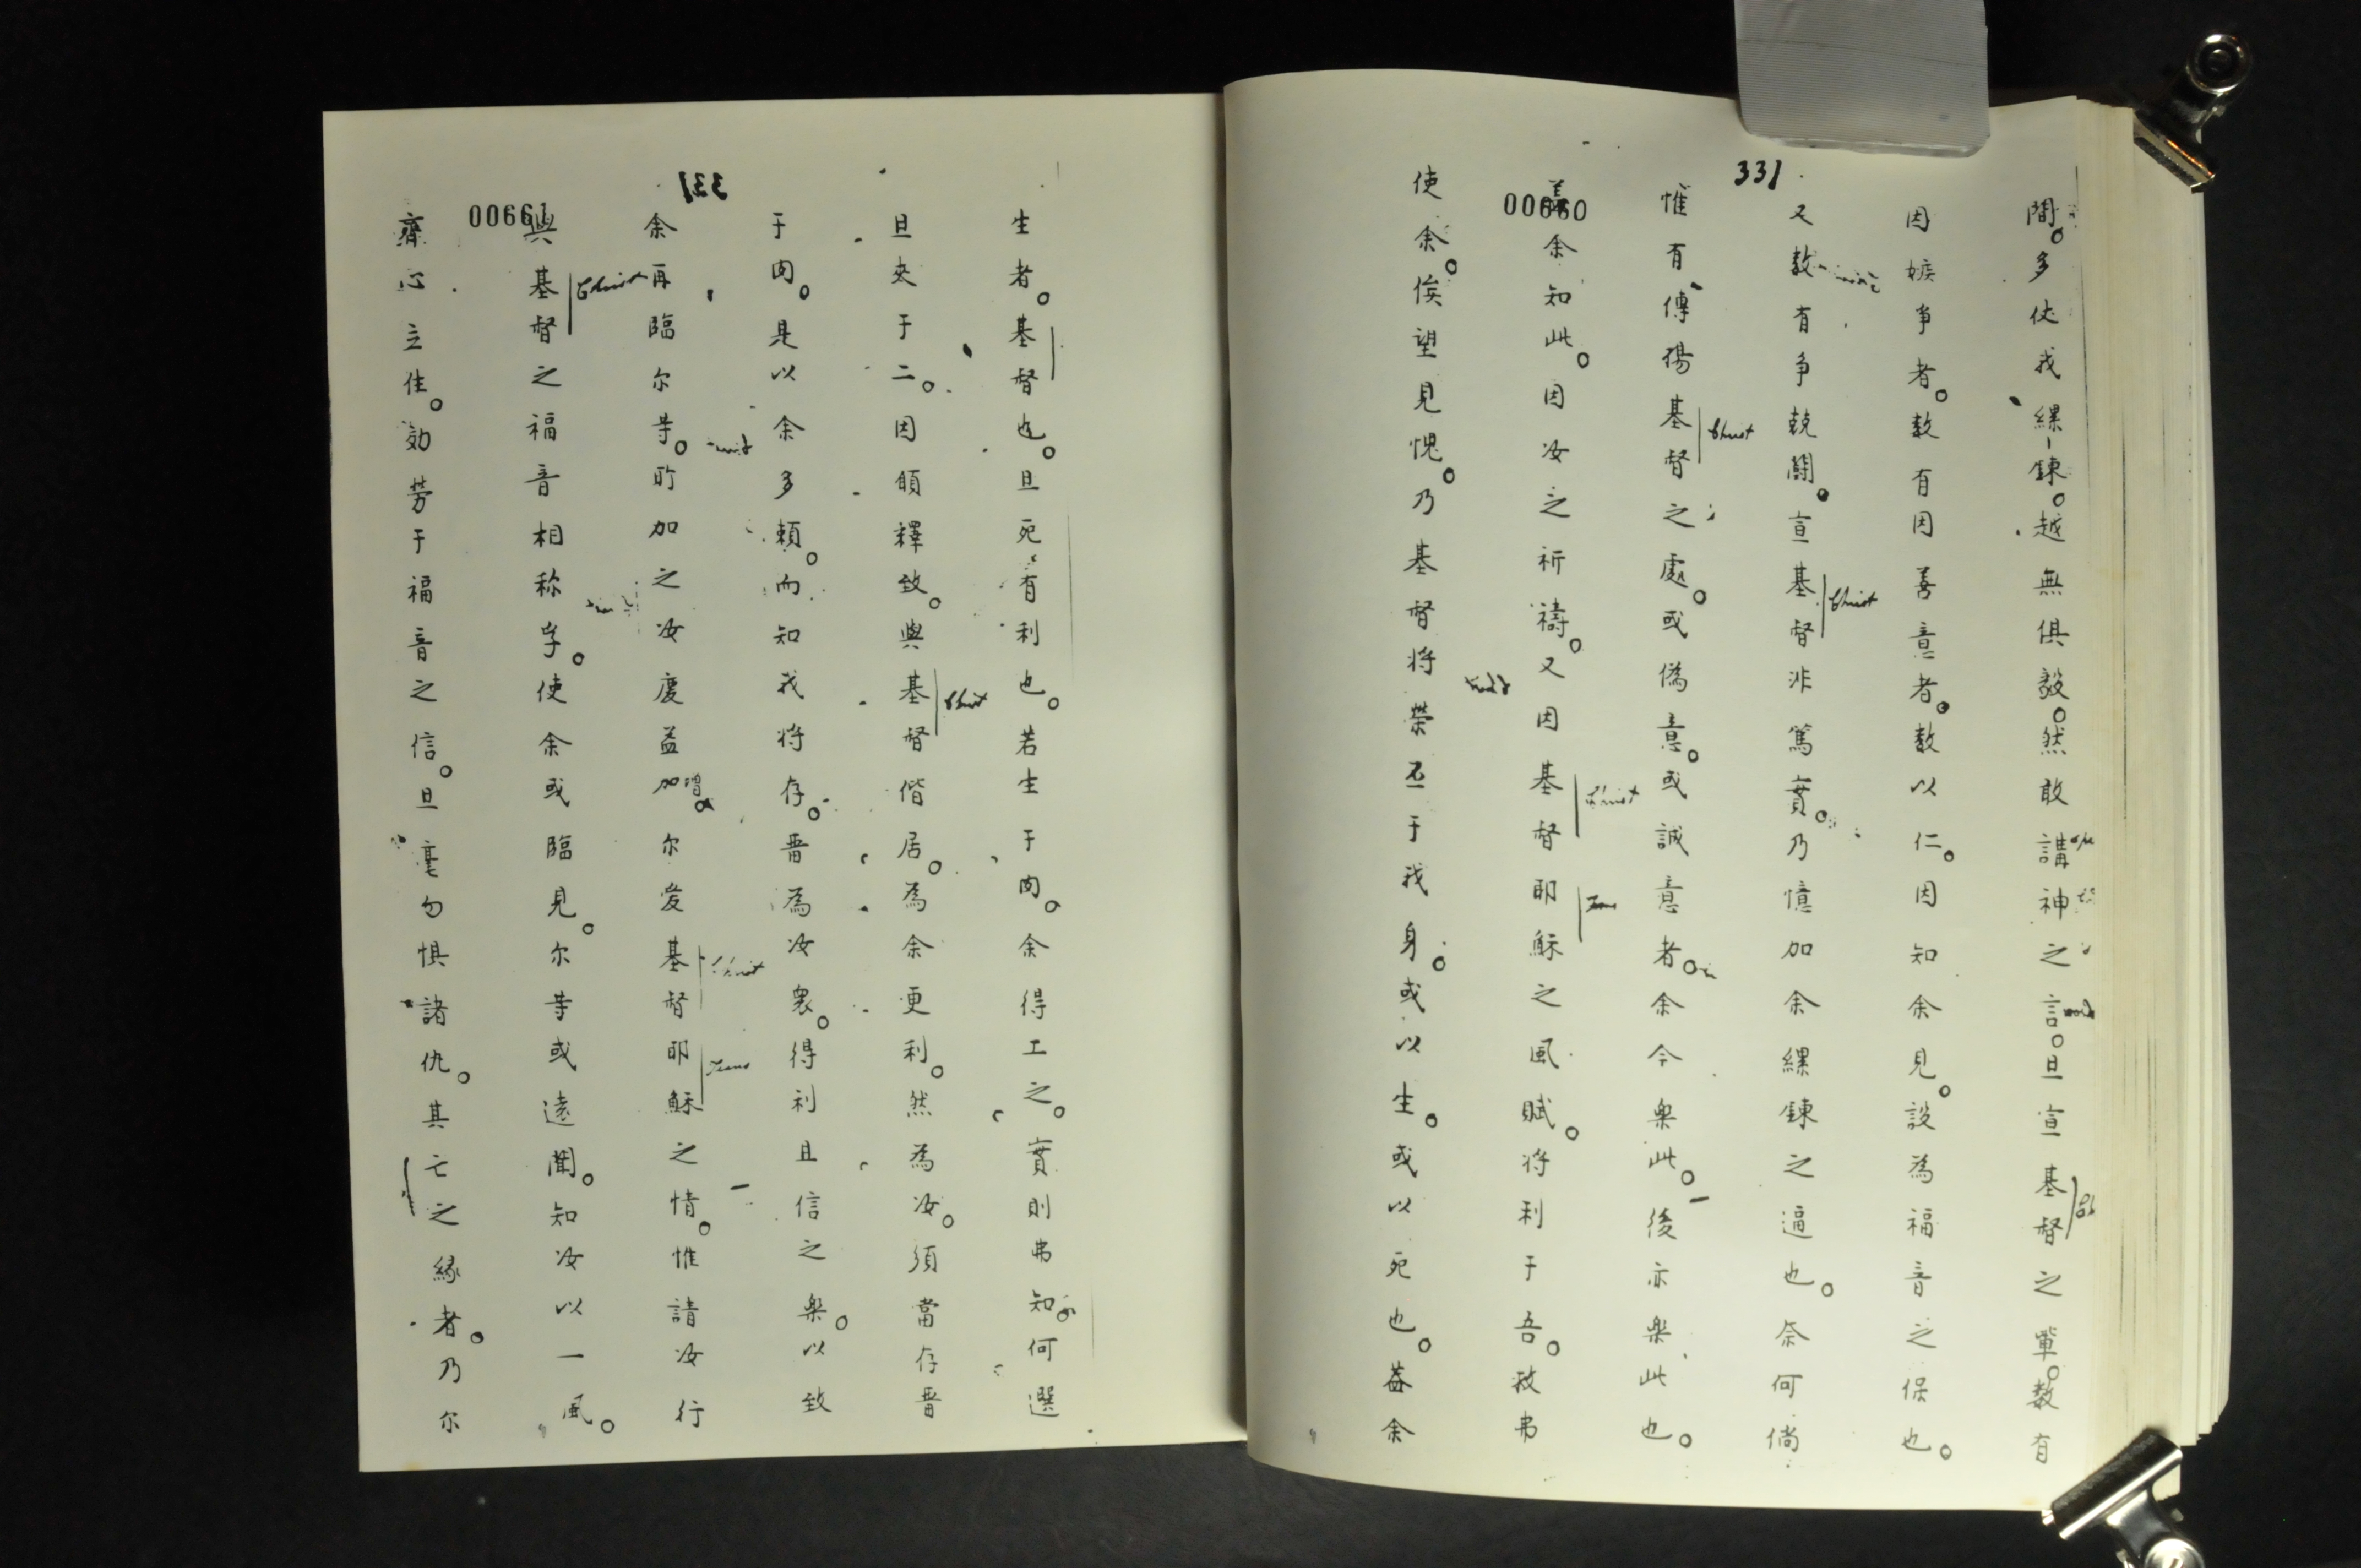 331
00660
間。多仗我縲鍊。越無俱毅。然敢講神之言。旦宣基督之單。数有
因嫉争者。数有因善意者。数以仁。因知余見。設為福音之保也。
又数有争競鬪。宣基督非篤實。乃憶加余縲鍊之逼也。奈何倘
惟有傳揚基督之處。或僞意。或誠意者。余今樂此。後亦樂此也。
余知此。因汝之祈禱。又因基督耶穌之風賦。将利于吾。救弗
使余。俟望見愧。乃基督将榮丕于我身。或以生。或以死也。葢余
Christ
Christ
Christ
Jesus
331
00661
生者。基督也。旦死有利也。若生于肉。余得工之。實則弗知。何選
旦夾于二。因頋釋致。與基督偕居。為余更利。然為汝。須當存晋
于肉。是以余多賴。而知我将存。晋為汝衆。得利且信之樂。以致
余再臨尔等。所加之汝慶益加增。尔爱基督耶穌之情。惟請汝行
與基督之福音相称孚。使余或臨見。尔等或遠聞。知汝以一風。
齋心立住。効劳于福音之信。旦毫勿惧諸仇。其亡之縁者。乃尔
Christ
Christ
Christ
Jesus